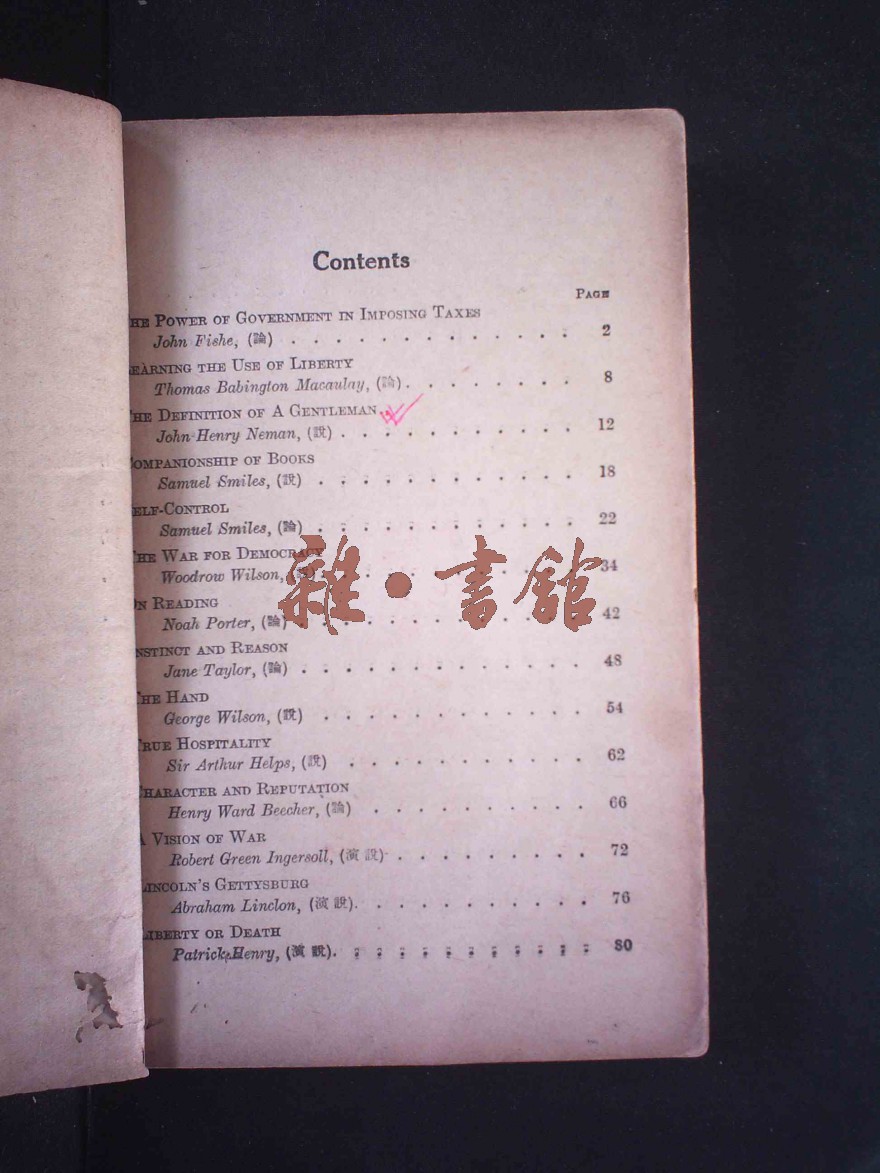 Contents
PAGE
HE POWER OF GOVERNMENT IN IMPOSING TAXES
John Fishe, (論) . . . . . . . . . . . . . 2
EARNING THE USE OF LIBERTY
Thomas Babington Macaulay, (論). . . . . . . . 8
HE DEFINITION OF A GENTLEMAN
John Henry Neman, (說) . . . . . . . . . . . 12
OMPANIONSHIP OF BOOKS
Samuel Smiles, (說) . . . . . . . . . . . . 18
ELF-CONTROL
Samuel Smiles, (論) . . . . . . . . . . . . 22
HE WAR FOR DEMOCRACY
Woodrow Wilson, . . . . . . . . . . . 34
N READING
Noah Porter, (論) . . . . . . . . . . . . 42
雜·書館
NSTINCT AND REASON
Jane Taylor, (論) . . . . . . . . . . . . . 48
HE HAND
George Wilson, (說) . . . . . . . . . . . . 54
RUE HOSPITALITY
Sir Arthur Helps, (說) . . . . . . . . . . . 62
HARACTER AND REPUTATION
Henry Ward Beecher, (論) . . . . . . . . . . 66
A VISION OF WAR
Robert Green Ingersoll, (演說) . . . . . . . . . 72
LINCOLN'S GETTYSBURG
Abraham Linclon, (演說). . . . . . . . . . . 76
LIBERTY OR DEATH
Patrick Henry, (演說). . . . . . . . . . . . 80